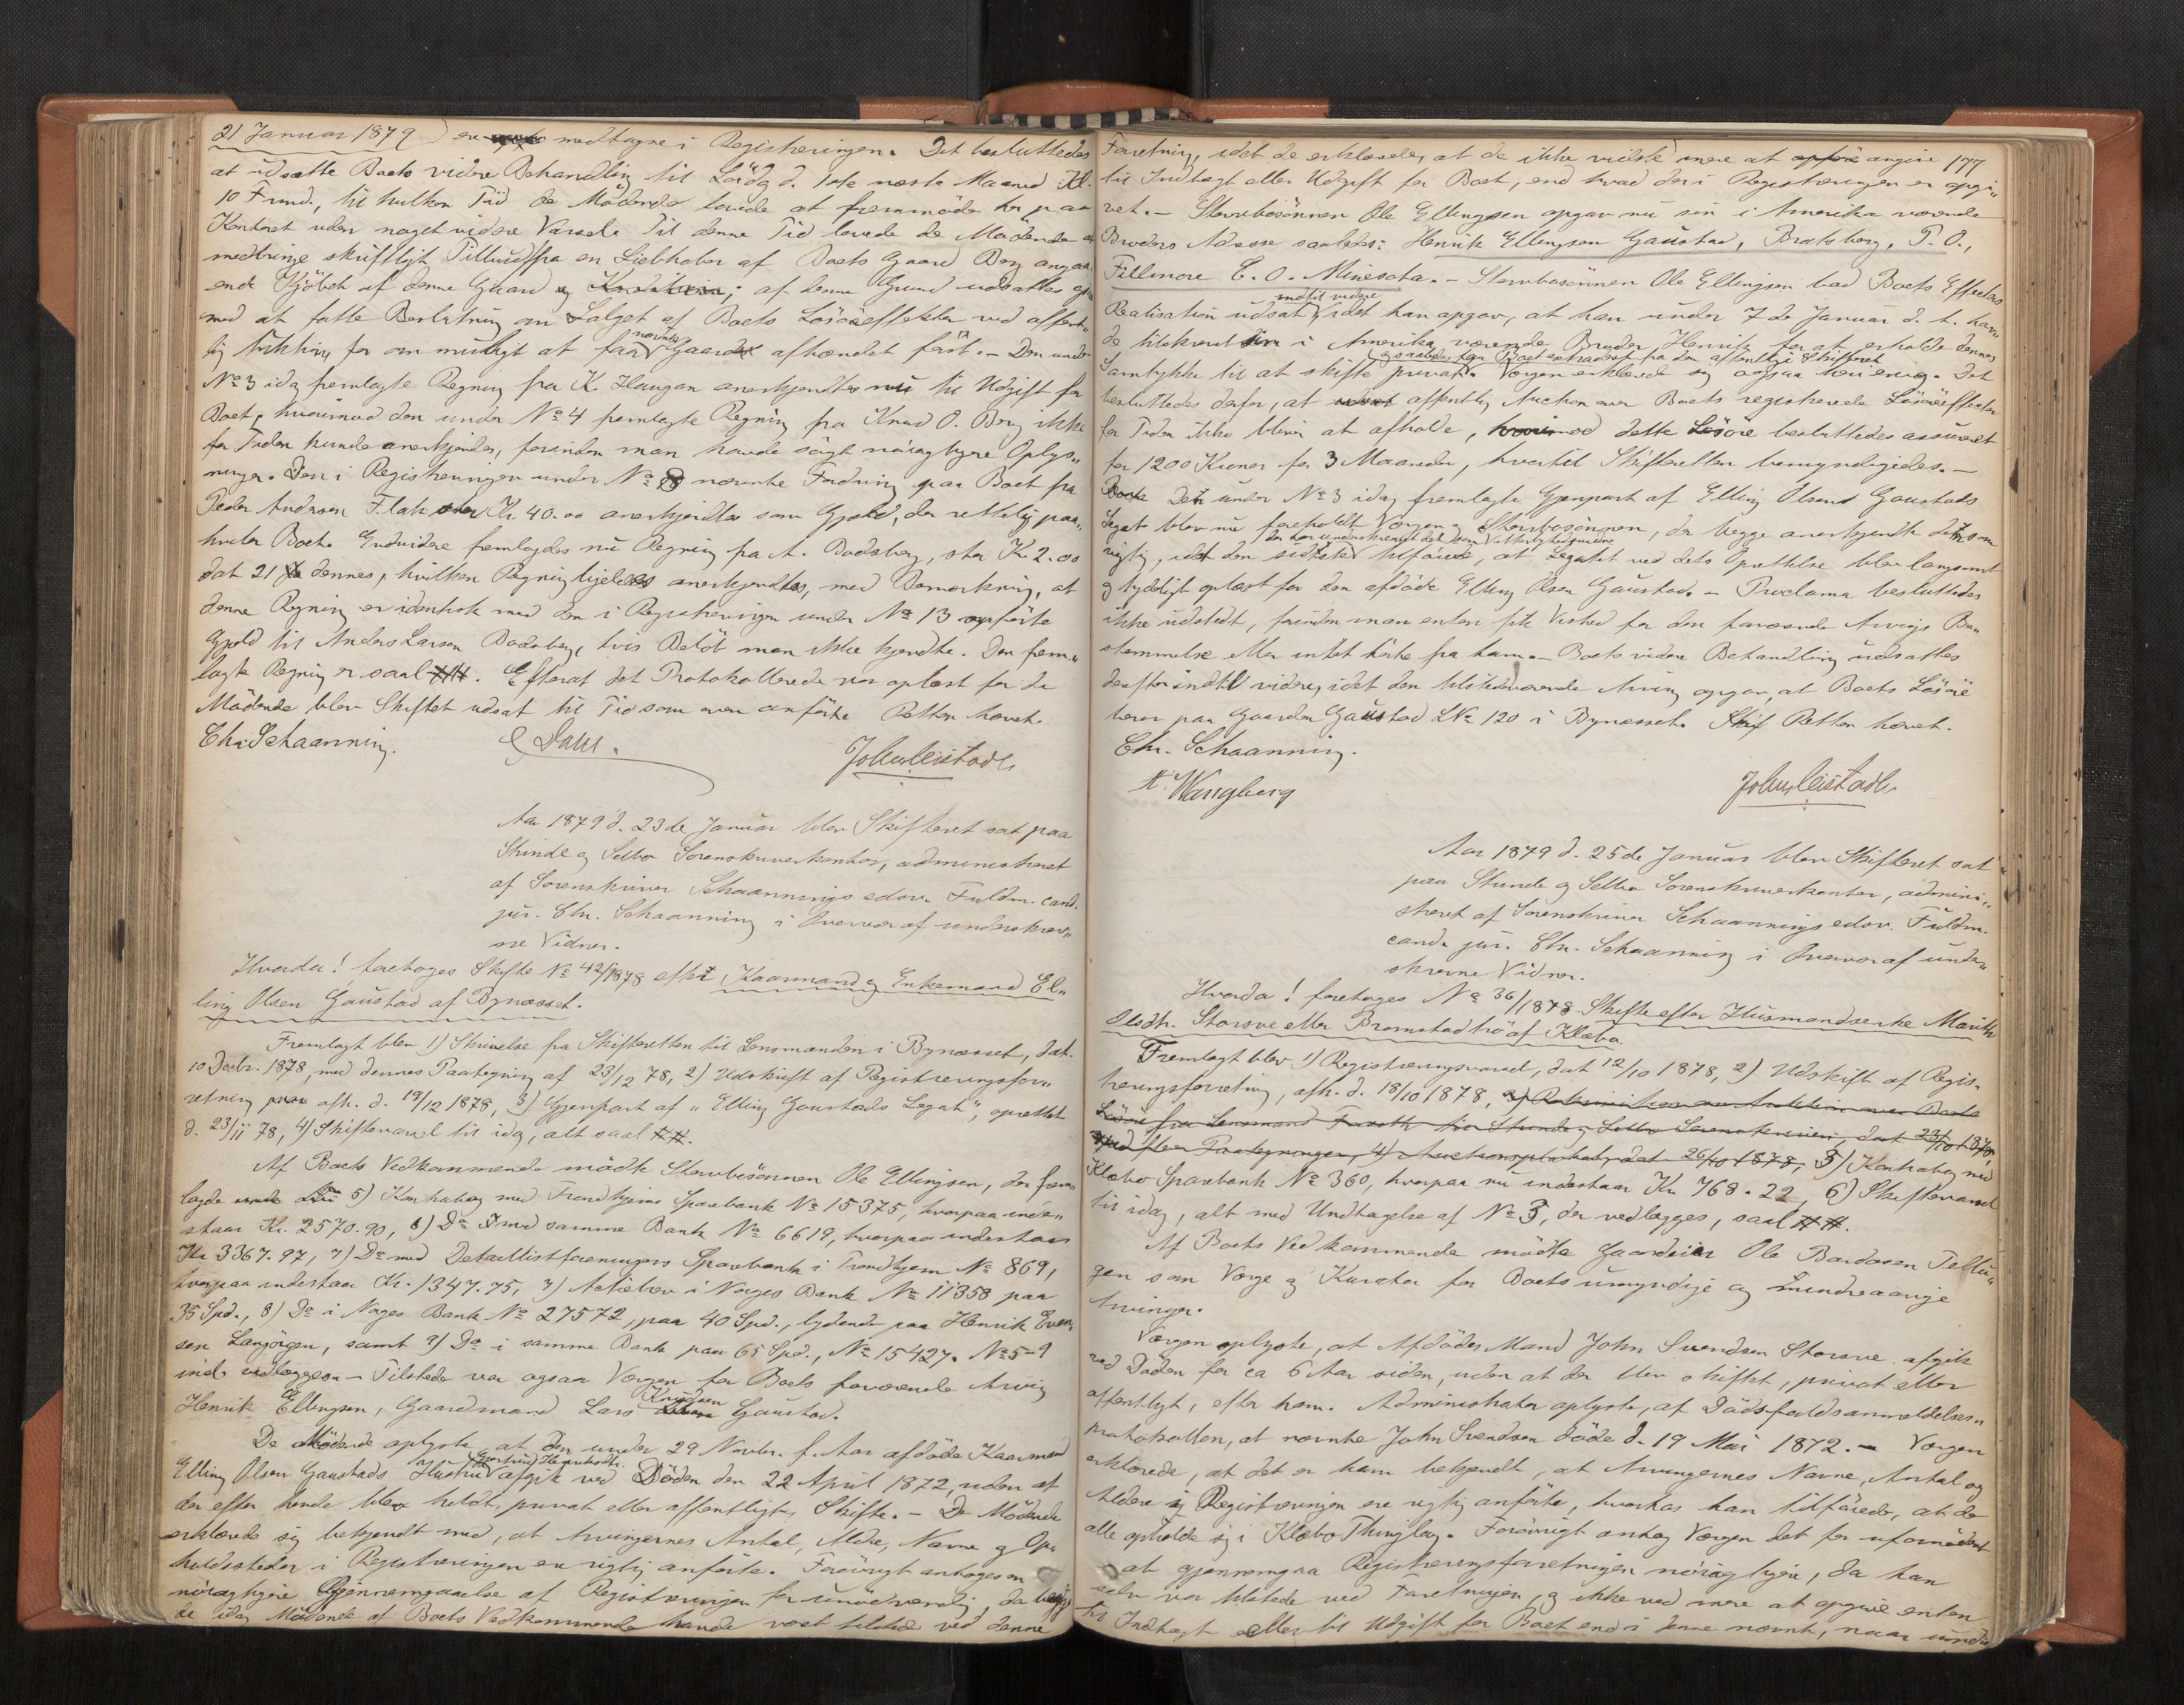 21 Januar 1879) ere medtagne i Registeringen. Det besluttedes
at udsætte Boets videre Behandling til Lørdag d. 1ste næste Maaned Kl.
10 Formd., til hvilken Tid de Mødende lovede at fremmøde her paa
Kontoret uden noget videre Varsel. Til denne Tid lovede de Mødende at
medbringe skriftligt Tilbud fra en Liebhaber af Boets Gaard Berg angaa-
ende Kjøbet af denne Gaard; af denne Grund udsattes og-
med at fatte Beslutning om Salget af Boets Løsøreeffekter ved offent-
lig Auktion for om muligt at faa nævnte Gaard afhændet først. - Den under
No 3 idag fremlagte Regning fra K. Haugan anerkjendtes nu til Udgift for
Boet, hvorimod den under No 4 fremlagte Regning fra Knud O. Berg ikke
for Tiden kunde anerkjendes, forinden man havde søgt nøiagtigere Oplys-
ninger. Den i Registreringen under No 8 nævnte Fordring paa Boet fra
Peder Andersen Flak stor Kr 40.00 anerkjendtes som Gjæld, der rettelig paa-
hviler Boet. Endvidere fremlagdes nu Regning fra A. Bodsberg, stor Kr. 2.00
dat 21 dennes, hvilken Regning ligeledes anerkjendtes, med Bemærkning, at
denne Regning er identisk med den i Registreringen under No 13 opførte
Gjæld til Anders Larsen Bodsberg, hvis Beløb man ikke kjendte. Den frem-
lagte Regning er saal. ##. Efterat det Protokollerede var oplæst for de
Mødende blev Skiftet udsat til Tid som oven anført. Retten hævet.
Chr. Schaanning. E Dahl. John Leistad
Aar 1879 d. 23de Januar blev Skifteret sat paa
Strinde og Selbo Sorenskriverkontor, administreret
af Sorenskriver Schaannings edsv. Fuldm. cand.
jur. Chr. Schaanning i Overvær af underskrev-
ne Vidner.
Hvorda! foretoges Skifte No 42/1878 efter Kaarmand og Enkemand El-
ling Olsen Gaustad af Bynæsset.
Fremlagt blev 1) Skrivelse fra Skifteretten til Lensmanden i Bynæsset, dat.
10 Decbr. 1878, med dennes Paategning af 23/12 78, 2) Udskrift af Registreringsfor-
retning afh. d. 19/12 1878, 3) Gjenpart af "Elling Gaustads Legat", oprettet
d. 23/11 78, 4) Skiftevarsel til idag, alt saal ##.
Af Boets Vedkommende mødte Stervbosønnen Ole Ellingsen, der frem-
lagde 5) Kontrabog med Trondhjems Sparebank No 15375, hvorpaa inde-
staar Kr. 2570.90, 6) Do med samme Bank No 6619, hvorpaa indestaar
Kr 3367.97, 7) Do med Detaillistforeningens Sparebank i Trondhjem No 869,
hvorpaa indestaar Kr. 1347.75, 7) Actiebrev i Norges Bank No 11358 paa
35 Spd., 8) Do i Norges Bank No 27572, paa 40 Spd., lydende paa Henrik Even-
sen Langørgen, samt 9) Do i samme Bank paa 65 Spd., No 15427. No 5-9
incl. vedlægges. - Tilstede var ogsaa Værgen for Boets fraværende Arving
Henrik Ellingsen, Gaardmand Lars Knudsen Gaustad.
De Mødende oplyste, at den under 29 Novbr. f. Aar afdøde Kaarmand
Elling Olsen Gaustads Hustru Henriksdtr. afgik ved Døden den 22 April 1872, uden at
der efter hende blev holdt, privat eller offentligt, Skifte. - De Mødende
erklærede sig bekjendt med, at Arvingernes Antal, Alder, Navne og Op-
holdssteder i Registreringen ere rigtig anførte. Forøvrigt antoges en
nøiagtigere Gjennemgaaelse af Registreringen for unødvendig, da begge
de idag Mødende af Boets Vedkommende havde været tilstede ved denne
Forretning, idet de erklærede, at de ikke vidste mere at angive 177
til Indtægt eller Udgift for Boet, end hvad der i Registreringen er opgi-
vet. - Stervbosønnen Ole Ellingsen opgav nu sin i Amerika værende
Broders Adresse saaledes: Henrik Ellingsen Gaustad, Bratsberg, P. O.,
Fillmore C.O. Minesota. - Stervbosønnen Ole Ellingsen bad Boets Effecters
Realisation udsat indtil videre, idet han opgav, at han under 7de Januar d. A. hav-
de tilskrevet sin i Amerika værende Broder Henrik for at erholde dennes
Samtykke til at skifte privat og saaledes faa Boet extraderet fra den offentlige Skifteret. Værgen erklærede sig ogsaa heri enig. Det
besluttedes derfor, at offentlig Auction over Boets registrerede Løsøreeffecter
for Tiden ikke bliver at afholde, hvorimod dette Løsøre besluttedes assureret
for 1200 Kroner for 3 Maaneder, hvortil Skifteretten bemyndigedes. -
Den under No 3 idag fremlagte Gjenpart af Elling Olsens Gaustads
Legat blev nu foreholdt Værgen og Stervbosønnen, der begge anerkjendte det som
rigtig, idet den sidste, der har underskrevet det som Vitterlighedsvidne, tilføiede, at Legatet ved dets Oprettelse blev langsomt
og tydeligt oplæst for den afdøde Elling Olsen Gaustad. - Proclama besluttedes
ikke udstedt, forinden man enten fik Vished for den fraværende Arvings Be-
stemmelse eller intet hørte fra ham. - Boets videre Behandling udsattes
derefter indtil videre, idet den tilstedeværende Arving opgav, at Boets Løsøre
beror paa Gaarden Gaustad LNo 120 i Bynæsset. Retten hævet.
Chr. Schaanning.
A. Wangberg John Leistad
Aar 1879 d. 25de Januar blev Skifteret sat
paa Strinde og Selbo Sorenskriverkontor, admini-
streret af Sorenskriver Schaannings edsv. Fuldm.
cand. jur. Chr. Schaanning i Overvær af under-
skrevne Vidner.
Hvorda! foretoges No 36/1878 Skifte efter Husmandsenke Marith
Olsdtr. Storove eller Bromstadtrø af Klæbo.
Fremlagt blev 1) Registreringsvarsel, dat 12/10 1878, 2) Udskrift af Regis-
treringsforretning, afh. d. 18/10 1878,
Løsøre fra Lensmand til Strinde og Selbo Sorenskriveri, dat 23/10 1878
med flere Paategninger, 4) dat 26/10 1878, 5) Kontrabog med
Klæbo Sparebank No 360, hvorpaa nu indestaar Kr. 768.22, 6) Skiftevarsel
til idag, alt med Undtagelse af No 5, der vedlægges, saal ##.
Af Boets Vedkommende mødte Gaardeier Ole Bardosen Tellu-
gen som Værge og Kurator for Boets umyndige og mindreaarige
Arvinger.
Værgen oplyste, at Afdødes Mand John Svendsen Storove afgik
ved Døden for ca 6 Aar siden, uden at der blev skiftet, privat eller
offentligt, efter ham. Administrator oplyste, af Dødsfaldsanmeldelses-
protokollen, at nævnte John Svendsen døde d. 19 Mai 1872. - Værgen
erklærede, at det er ham bekjendt, at Arvingernes Navne, Antal og
Aldere i Registreringen ere rigtig anførte, hvorhos han tilføiede, at de
alle opholde sig i Klæbo Thinglag. Forøvrigt antog Værgen det for ufornødent
at gjennemgaa Registreringsforretningen nøiagtigere, da han
selv var tilstede ved Forretningen, og ikke ved mere at opgive enten
til Indtægt eller til Udgift for Boet end i denne nævnt, naar und-